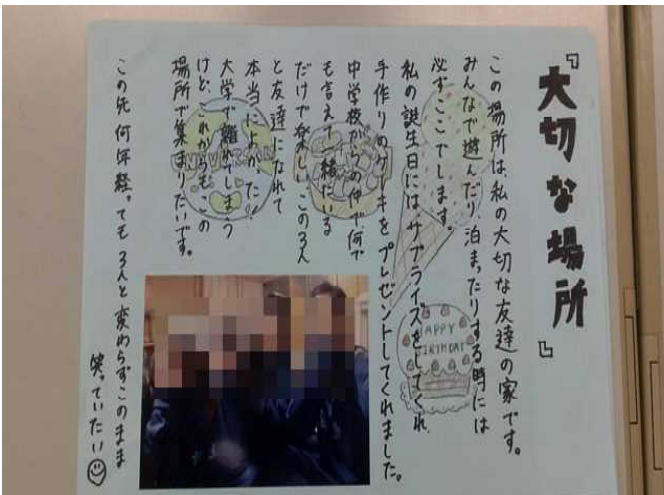 『大切な場所』
この場所は、私の大切な友達の家です。
みんなで遊んだり、泊まったりする時には
必ずここでします。
私の誕生日には、サプライズをしてくれ、
手作りのケーキをプレゼントしてくれました。
中学校からの仲で、何で
も言えて一緒にいる
だけで楽しい、この3人
と友達になれて
本当によかった!!
大学で離れてしまう
けど、これからもこの
場所で集まりたいです。
この先何年経っても3人と変わらずこのまま
笑っていたい
HAPPY
BIRTHDAY